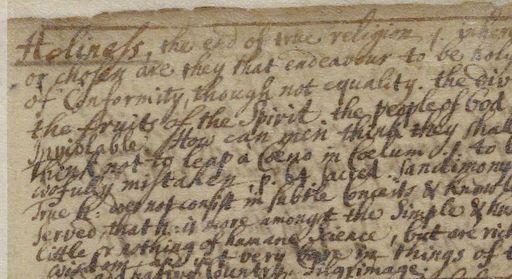 Holiness, the end of true religion /. when
or chosen are they that endeavour to be holy
of Conformity, though not equality. the div
the fruit of the Spirit. the people of God
Inviolable. How can men think they shall
think not to leap a Cœno in Cœlum /. to b
wofully mistaken /. et sacred. sanctimony
True h: does not consist in subtle conceits & know
served that h: is more amongst the simple & hu
little or nothing of humane Science, but are rich
wisdom and yet very in things of t
native Country. Pilgrimage.